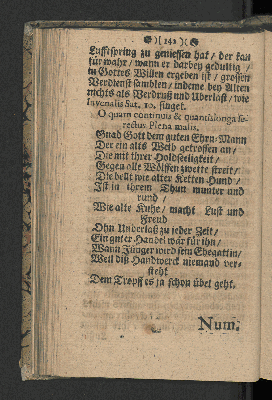 )( 142 )(
Lufftspring zu geniessen hat / der kan
fürwahr / wann er darbey gedultig /
in Gottes Willen ergeben ist / grossen
Verdienst samblen / indeme bey Alten
nichts als Verdruß und Uberlast / wie
Juvenalis Sat. 10. singet.
O quam continuis & quantis longa se-
nectus Plena malis.
Gnad Gott dem guten Ehrn-Mann
Der ein alts Weib getroffen an /
Die mit ihrer Holdseeligkeit /
Gegen alle Wölffen zwette streit /
Die bellt wie alter Ketten-Hund /
Ist in ihrem Thun munter und
rund /
Wie alte Kühe / macht Lust und
Freud
Ohn Underlaß zu jeder Zeit /
Ein guter Handel wär für ihn /
Wann Jünger wird sein Ehegattin /
Weil diß Handwerck niemand ver-
steht
Dem Tropff es ja schon übel geht.
Num.